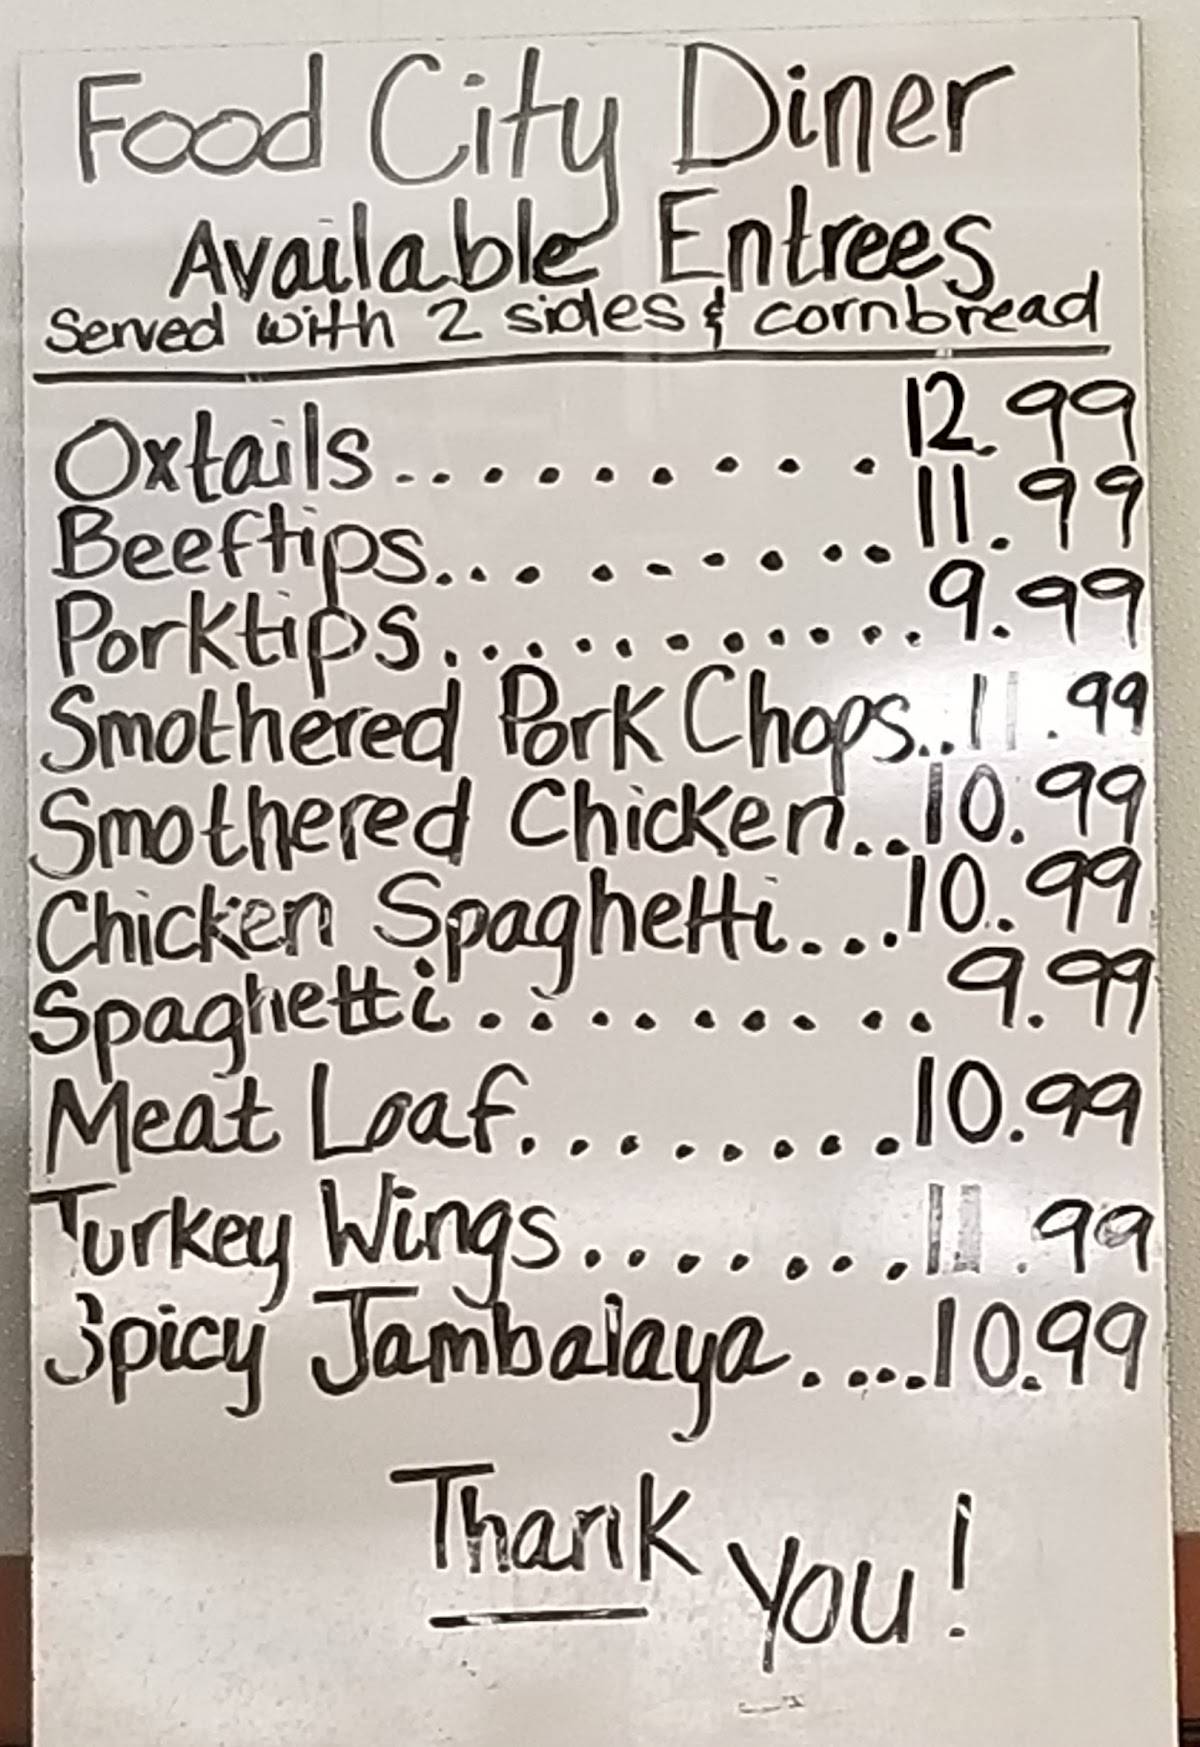 Food City Diner
Available Entrees
Served with 2 sides & cornbread
Oxtails.......... 12.99
Beeftips.......... 11.99
Porktips........... 9.99
Smothered Pork Chops..11.99
Smothered Chicken..10.99
Chicken Spaghetti...10.99
Spaghetti......... 9.99
Meat Loaf........10.99
Turkey Wings.......11.99
Spicy Jambalaya.....10.99
Thank
You!